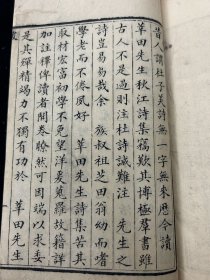 昔人謂杜子美詩無一字無來歷今讀
華田先生秋江詩集竊歎其博極羣書雖
古人不是過則注杜詩誠難注　先生之
詩豈易易哉余　族叔祖芝田翁幼而嗜
學老而不倦夙好　華田先生詩集苦其
取材宏富初學不免望洋爰蒐羅故籍詳
加註釋俾讀者開卷瞭然可因端以求委
是其殫精竭力不獨有功於　華田先生